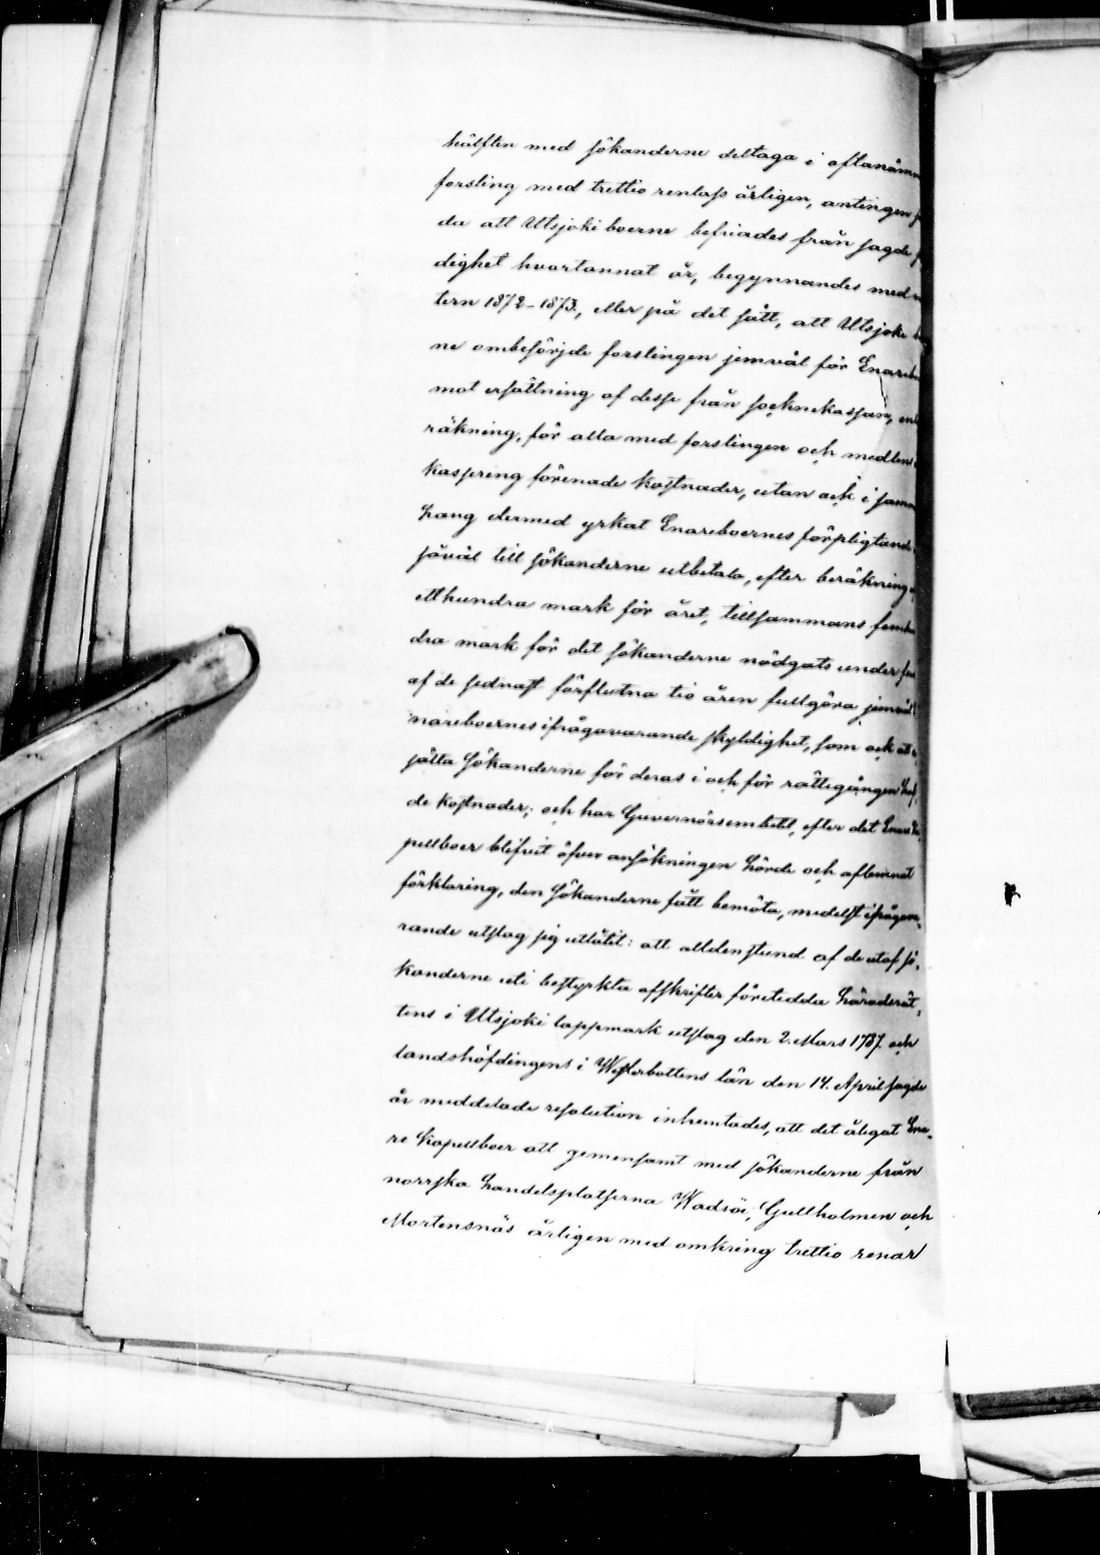 hälften med sökanderne deltaga i oftanämn
forsling med trettio renlass årligen, antingen
da att Utsjoki boerne befriades från sagde
dighet hvartannat år, begynnandes med
tern 1872-1873, eller på det sätt, att Utsjoki
ne ombesörjde forslingen jemväl för Enarebo
mot ersättning af desse från sochnekassan, enl
räkning, för alla med forslingen och medlens
kassering förenade kostnader, utan ock i samm
hang dermed yrkat Enareboernes förpligtande
såväl till sökanderne utbetala, efter beräkning
etthundra mark för året, tillsammans femhun
dra mark för det sökanderne nödgats under fem
af de sednast förflutna tio åren fullgöra jemväl
nareboernes ifrågavarande skyldighet, som ock
sätta sökanderne för deras i och för rättegången haf,
de kostnader; och har Guvernörsembetet, efter det Enare ka,
pellboer blifvit öfver ansökningen hörde och aflemnat
förklaring, den sökanderne fått bemöta, medelst ifrågava,
rande utslag sig utlåtit: att alldenstund af de utaf sö,
kanderne uti bestyrkta afskrifter företedda häradsrät,
tens i Utsjoki lappmark utslag den 2. Mars 1787 och
landshöfdingens i Westerbottens län den 14. April sagde
år meddelade resolution inhemtades, att det ålegat Ena,
re kapellboer att gemensamt med sökanderne från
norrska handelsplatserna Wadsöe, Gullholmen och
Mortensnäs årligen med omkring trettio renar